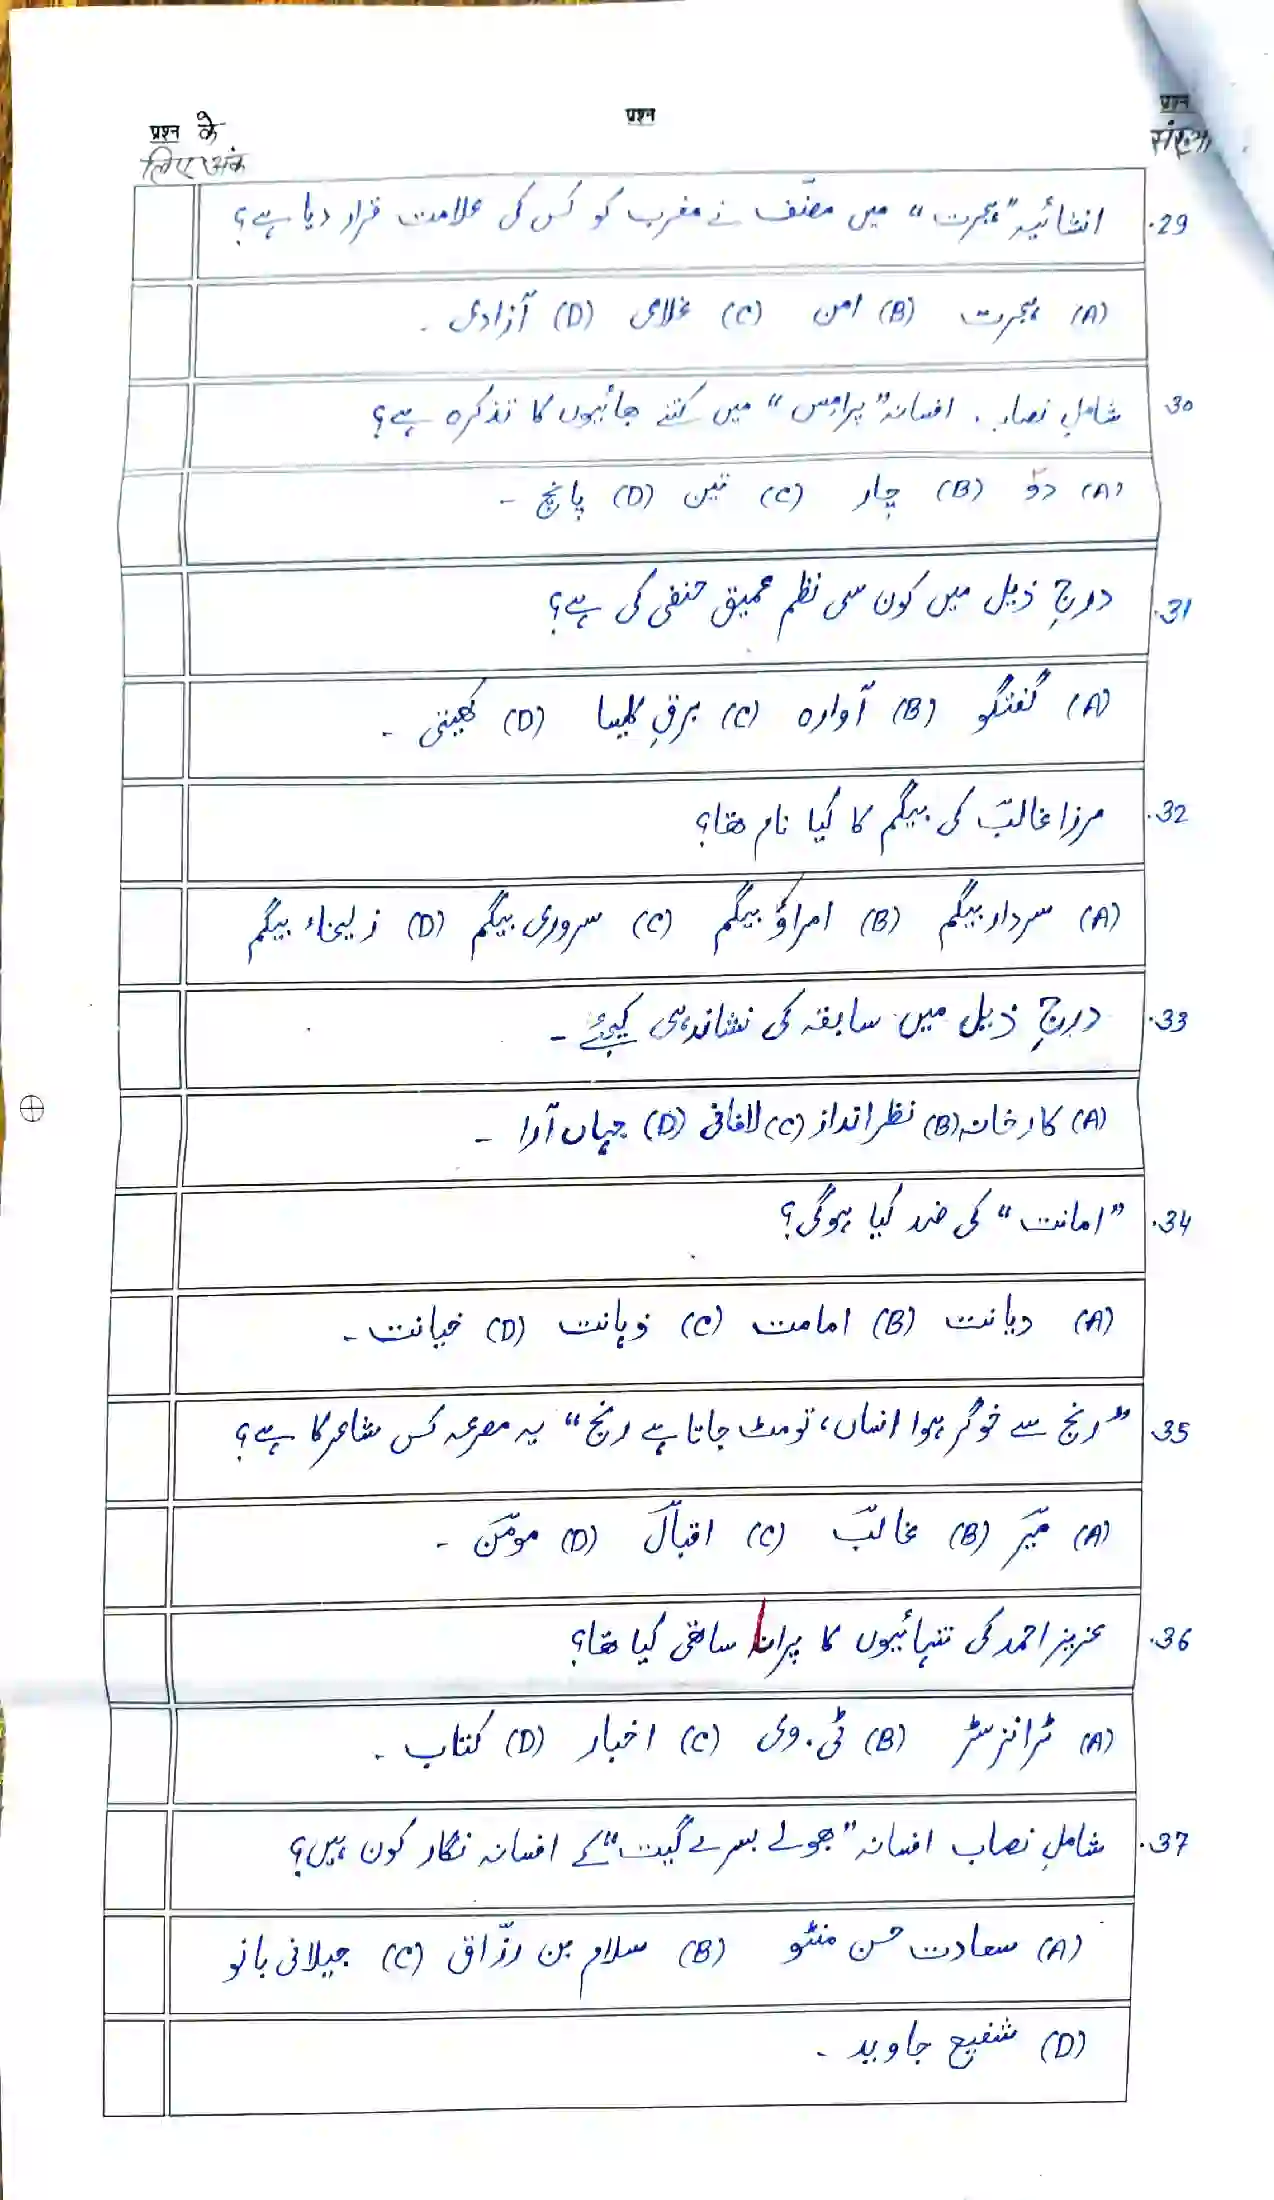 प्रश्न के लिए अंक
प्रश्न
प्रश्न संख्या
29. انشائیہ ”ہجرت“ میں مصنّف نے مغرب کو کس کی علامت قرار دیا ہے؟
(A) ہجرت (B) امن (C) غلامی (D) آزادی ۔
30. شاملِ نصاب، افسانہ ”پرامس“ میں کتنے بھائیوں کا تذکرہ ہے؟
(A) دو (B) چار (C) تین (D) پانچ ۔
31. درجِ ذیل میں کون سی نظم عمیق حنفی کی ہے؟
(A) گفتگو (B) آوارہ (C) برقِ کلیسا (D) کھیتی ۔
32. مرزا غالبؔ کی بیگم کا کیا نام تھا؟
(A) سردار بیگم (B) امراؤ بیگم (C) سروری بیگم (D) زلیخاء بیگم
33. درجِ ذیل میں سابقہ کی نشاندہی کیجئے ۔
(A) کارخانہ (B) نظر انداز (C) لافانی (D) جہاں آرا ۔
34. ”امانت“ کی ضد کیا ہوگی؟
(A) دیانت (B) امامت (C) ذہانت (D) خیانت ۔
35. ”رنج سے خوگر ہوا انساں، تو مٹ جاتا ہے رنج“ یہ مصرعہ کس شاعر کا ہے؟
(A) میرؔ (B) غالبؔ (C) اقبالؔ (D) مومنؔ ۔
36. عزیز احمد کی تنہائیوں کا پرانا ساتھی کیا تھا؟
(A) ٹرانزسٹر (B) ٹی.وی (C) اخبار (D) کتاب ۔
37. شاملِ نصاب افسانہ ”بھولے بسرے گیت“ کے افسانہ نگار کون ہیں؟
(A) سعادت حسن منٹو (B) سلام بن رزّاق (C) جیلانی بانو
(D) شفیع جاوید ۔